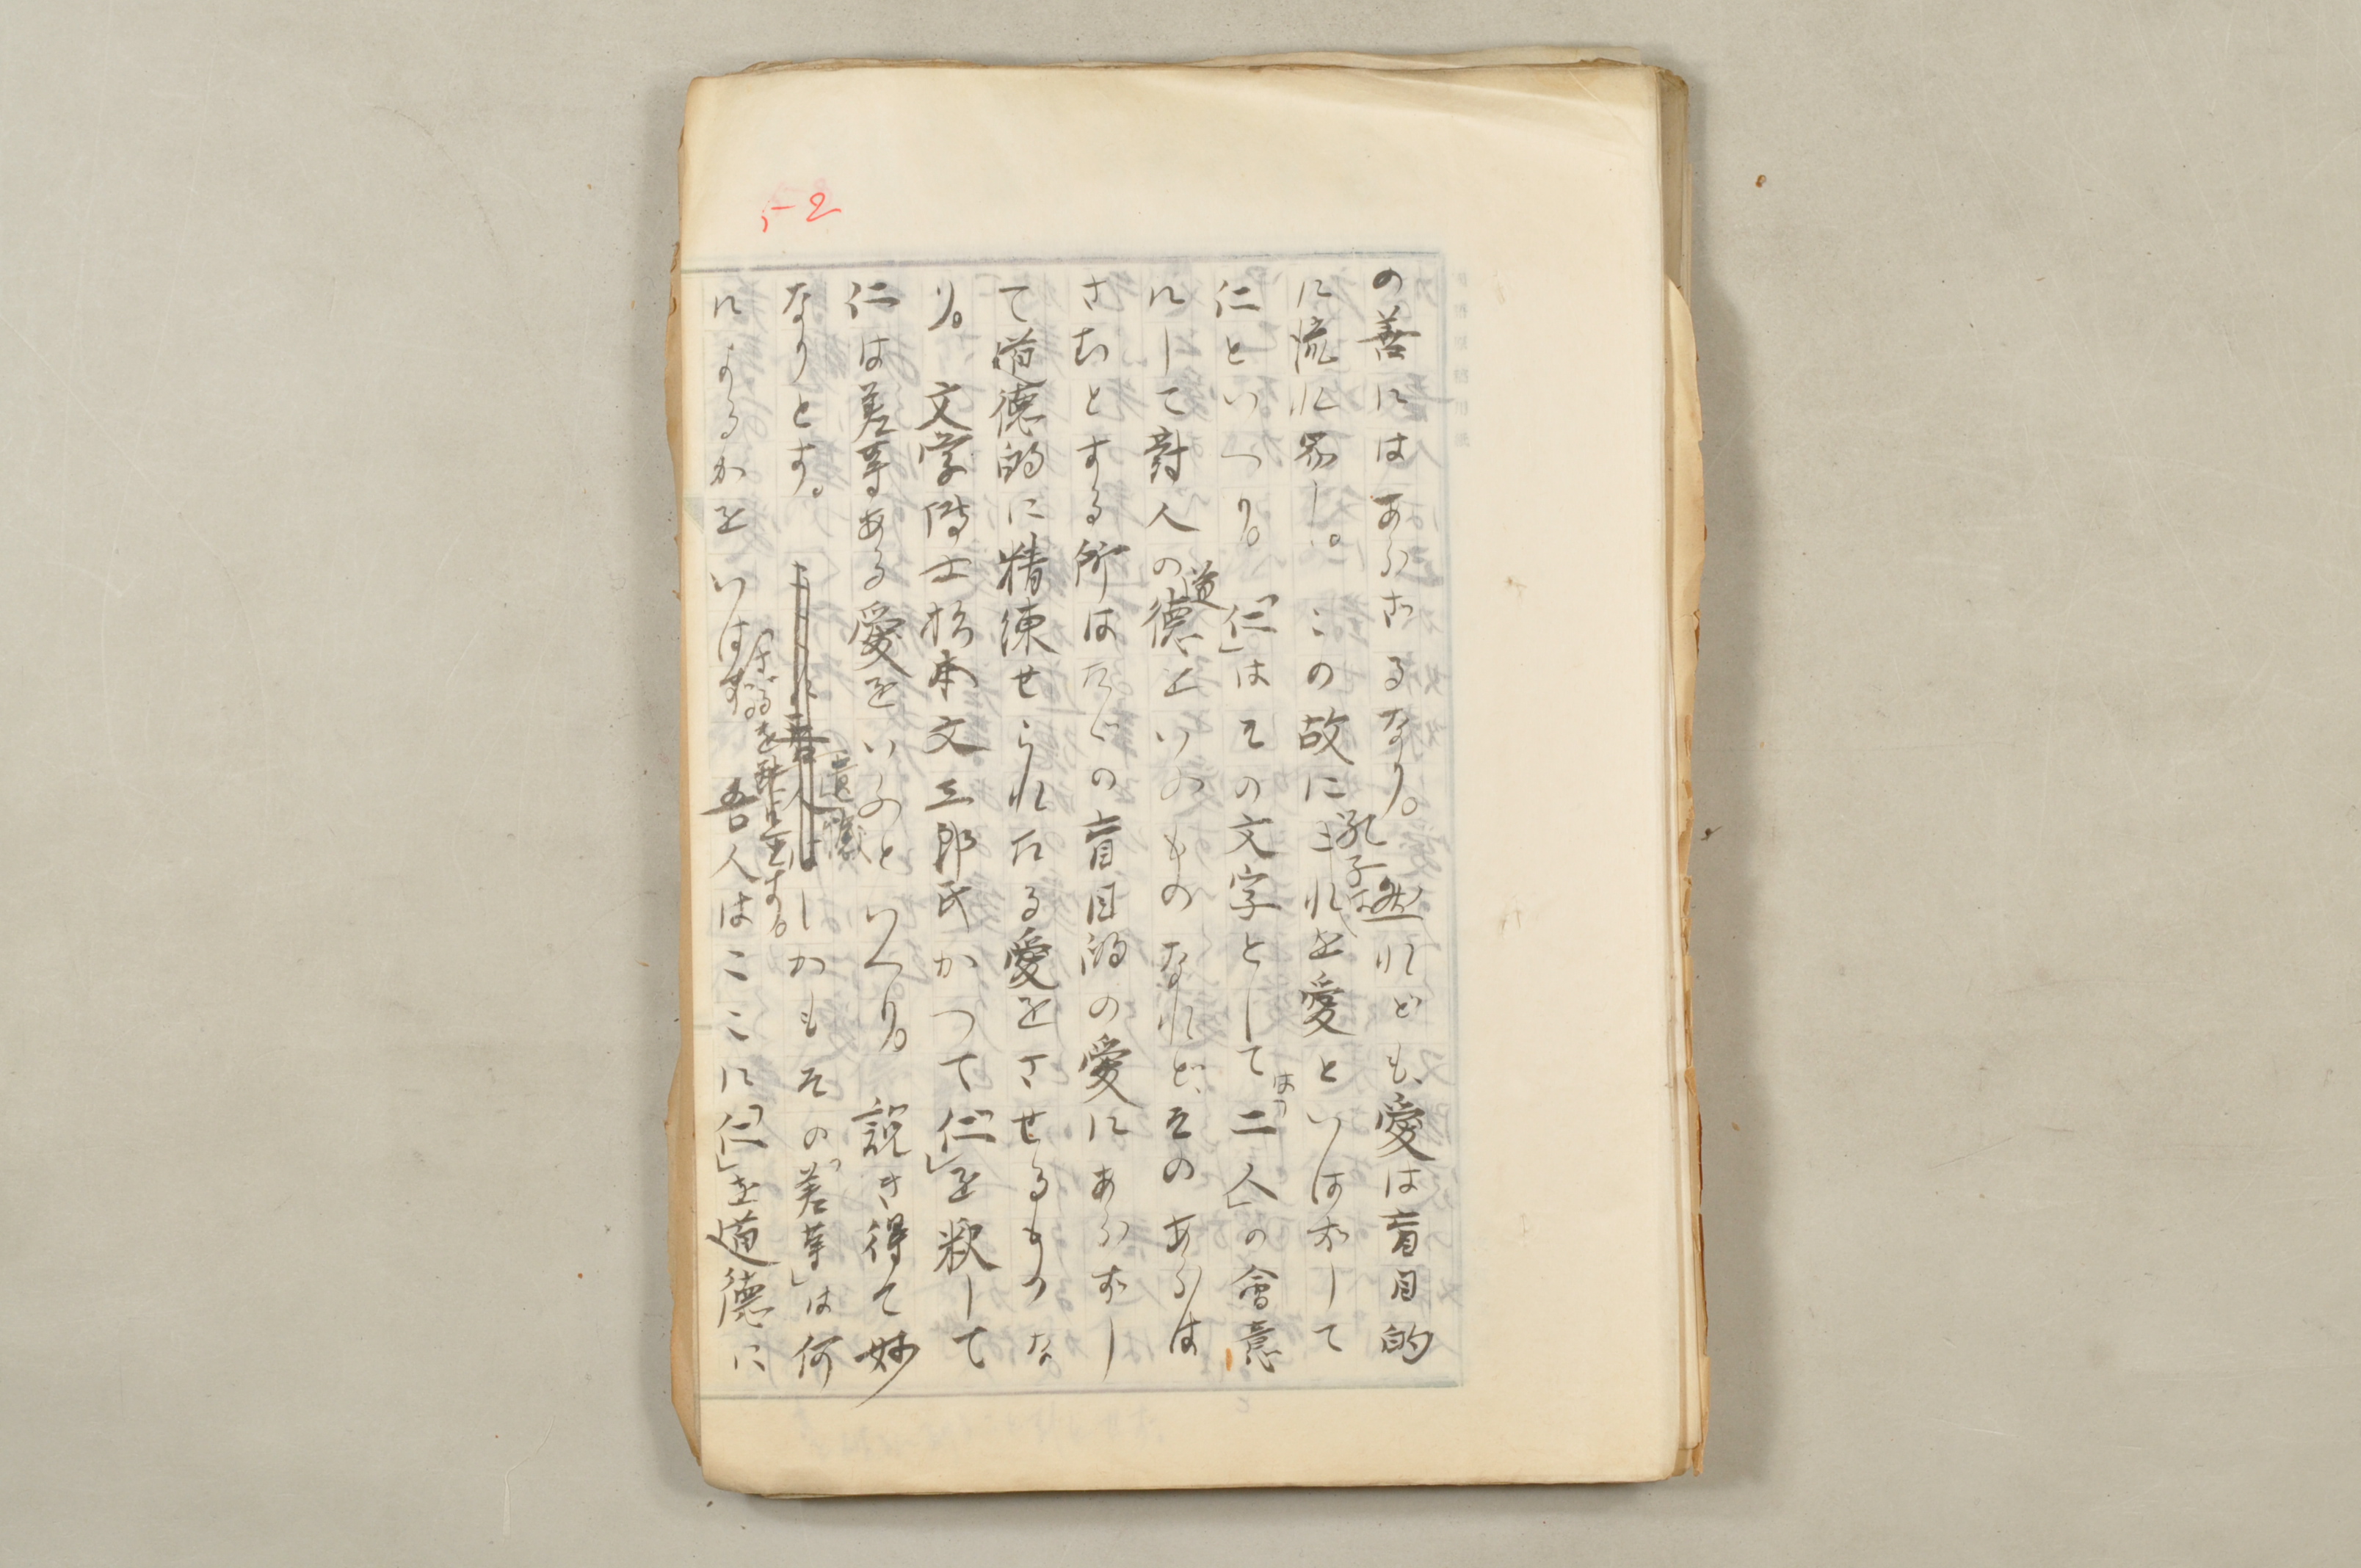 5-2
の善にはあらざるなり。然れども、愛は盲目的
に流れ易し。この故に孔子はこれを愛といはずして
仁といへり。「仁」はその文字としては「二人」の會意
にして對人の道德上いふものなれど、そのあらは
さむとする所はたゞの盲目的の愛にあらずし
て道德的に精練せられたる愛をさせるものな
り。文学博士松本文三郎氏かつて「仁」を釈して
仁は差等ある愛をいふのといへり。説き得て妙
なりとす。しかもその「差等」は何
によるかをいはざるを遺憾とす。吾人はここに「仁」を道德に